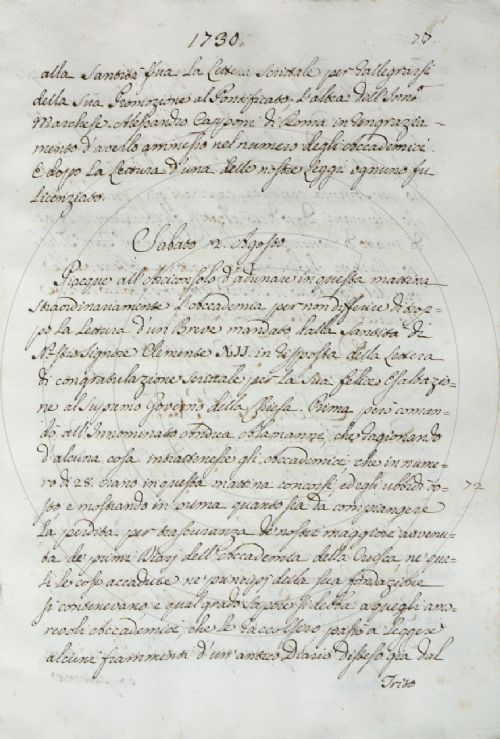 1730.
77
alla Santità Sua la Lettera scrittale per rallegrarsi
della Sua Promozione al Pontificato, l'altra dell'
Marchese Alessandro Cappone di Roma in ringrazia-
mento d'averlo ammesso nel numero degli Accademici.
E dopo la Lettura d'una delle nostre Leggi ognuno fu
Licenziato.
Sabato 2. Agosto.
Piacque all'Arciconsolo d'adunare in questa mattina
straordinariamente l'Accademia per non differire di trop-
po la Lettura d'un Breve mandato dalla Santità di
Nostro Signore Clemente XII. in risposta della Lettera
di congratulazione scrittale per la sua felice Esaltazio-
ne al supremo Governo della Chiesa. Prima però coman-
dò all'Innominato Andrea Alamanni, che ragionando
d'alcuna cosa intrattenesse gli Accademici, che in nume-
ro di 28. erano in questa mattina concorsi, ed egli ubbidì to-
72
sto e mostrando in prima quanto sia da compiangere
la perdita per trascuranza de nostri maggiori avvenu-
ta de primi Diarj dell'Accademia della Crusca, ne que-
li le cose accadute ne principj della sua fondazione
si contenevano e qual grado sapere si debba a quegli amo-
revoli Accademici, che le raccolsero passò a leggere
alcuni frammenti d'un antico Diario disteso già dal
Trito